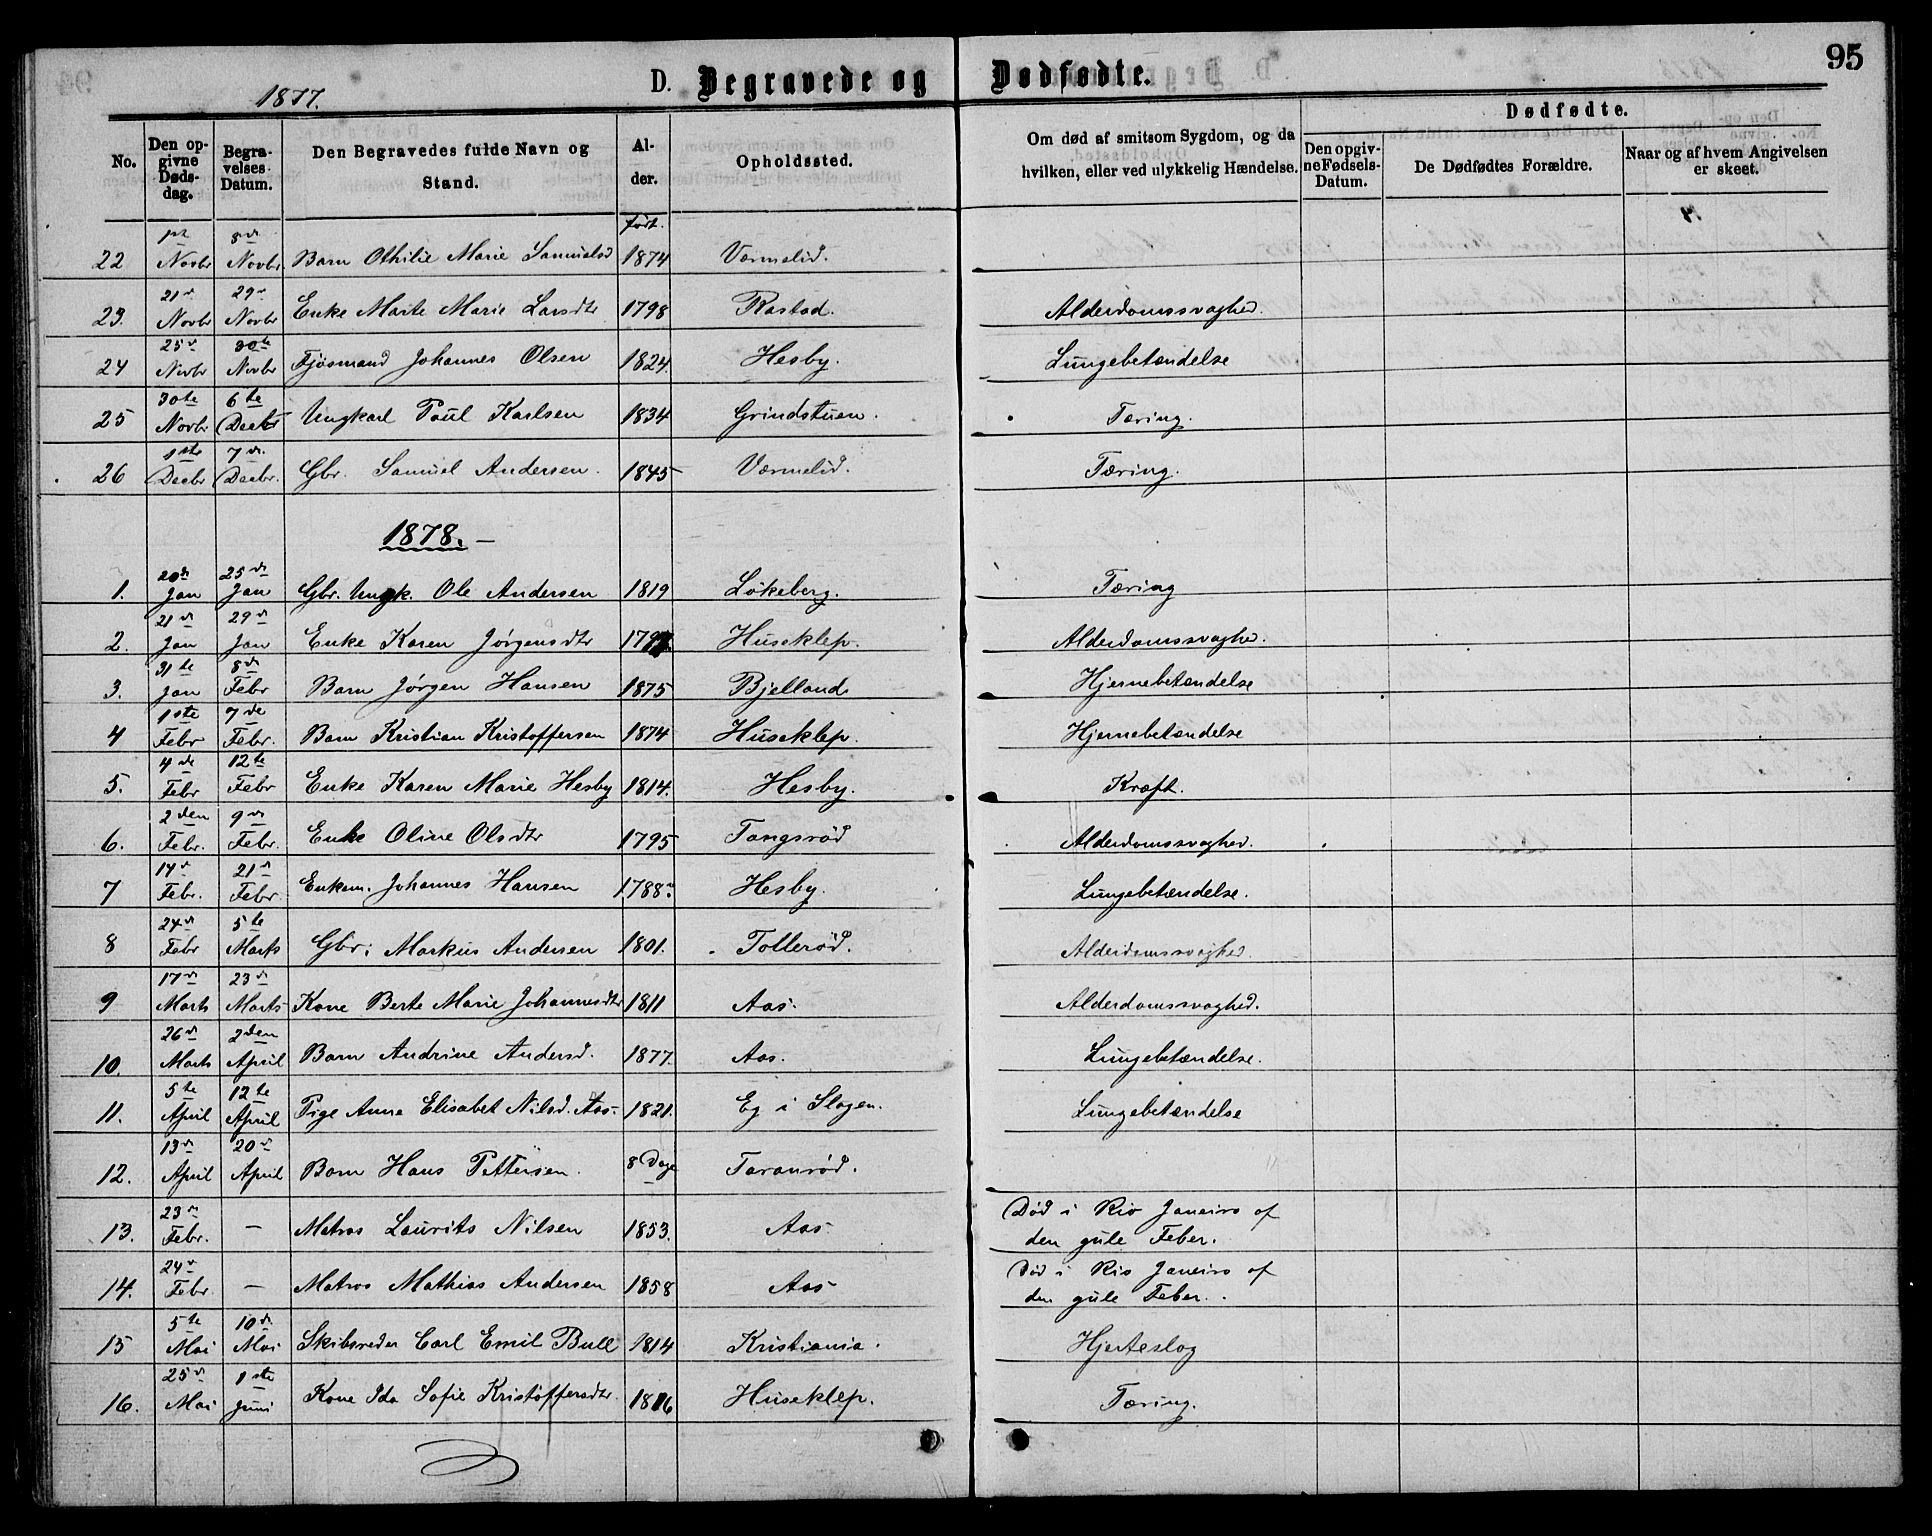 95
1877.
D. Begravede og Dødfødte.
No.
Den opgivne Dødsdag.
Begravelses Datum.
Den Begravedes fulde Navn og Stand.
Alder.
Opholdssted.
Om død af smitsom Sygdom, og da hvilken, eller ved ulykkelig Hændelse.
Dødfødte.
Den opgivne Fødsels-Datum.
De Dødfødtes Forældre.
Naar og af hvem Angivelsen er skeet.
født.
22 1st Novbr 8de Novbr. Barn Othilie Marie Samuelsd 1874 Vermelid.
23. 21de Novbr 29de Novbr Enke Marte Marie Larsdtr 1798 Rastad. Alderdomssvaghed.
24 25de Novbr 30te Novbr Fjøsmand Johannes Olsen 1824. Hesby. Lungebetændelse
25 30te Novbr 6te Decbr Ungkarl Paul Karlsen 1834 Grindstuen. Tæring.
26 1ste Decbr 7de Decbr. Gbr. Samuel Andersen. 1845 Vermelid. Tæring.
1878. -
1. 20de Jan 25de Jan Gbr. Ungk. Ole Andersen 1819 Løkeberg. Tæring
2. 21de Jan 29de Jan Enke Karen Jørgensdtr Huseklep. Alderdomssvaghed.
3. 31te Jan 8de Febr Barn Jørgen Hansen 1875 Bjelland Hjernebetændelse
4 1ste Febr 7de Febr. Barn Kristian Kristoffersen 1874 Huseklep. Hjernebetændelse
5. 4de Febr 12te Febr Enke Karen Marie Hesby 1814. Hesby. Kræft.
6. 2den Febr. 9de Febr. Enke Oline Olsdtr 1795 Tangsrød Alderdomssvaghed.
7 14de Febr. 21de Febr Enkem. Johannes Hansen 1788. Hesby. Lungebetændelse.
8 24de Febr 5te Marts Gbr: Markus Andersen 1801. Tollerød. Alderdomssvaghed.
9 17de Marts 23de Marts Kone Berte Marie Johannesdtr 1811 Aas. Alderdomssvaghed.
10. 26de Marts 2den April Barn Andrine Andersd. 1877. Aas. Lungebetændelse.
11. 5te April 12te April Pige Anne Elisabet Nilsd. Aas. 1821. Eg i Slagen. Lungebetændelse
12. 13de April 20de April Barn Hans Pettersen. 8 Dage Taranrød.
13. 23de Febr. - Matros Laurits Nilsen 1853. Aas Død i Rio Janeiro af
den gule Feber.
14. 24de Febr - Matros Mathias Andersen 1858 Aas Død i Rio Janeiro af
den gule Feber.
15 5te Mai 10de Mai Skibsreder Carl Emil Bull 1814 Kristiania. Hjerteslag
16. 25de Mai 1ste Juni Kone Ida Sofie Kristoffersdtr. Huseklep. Tæring.